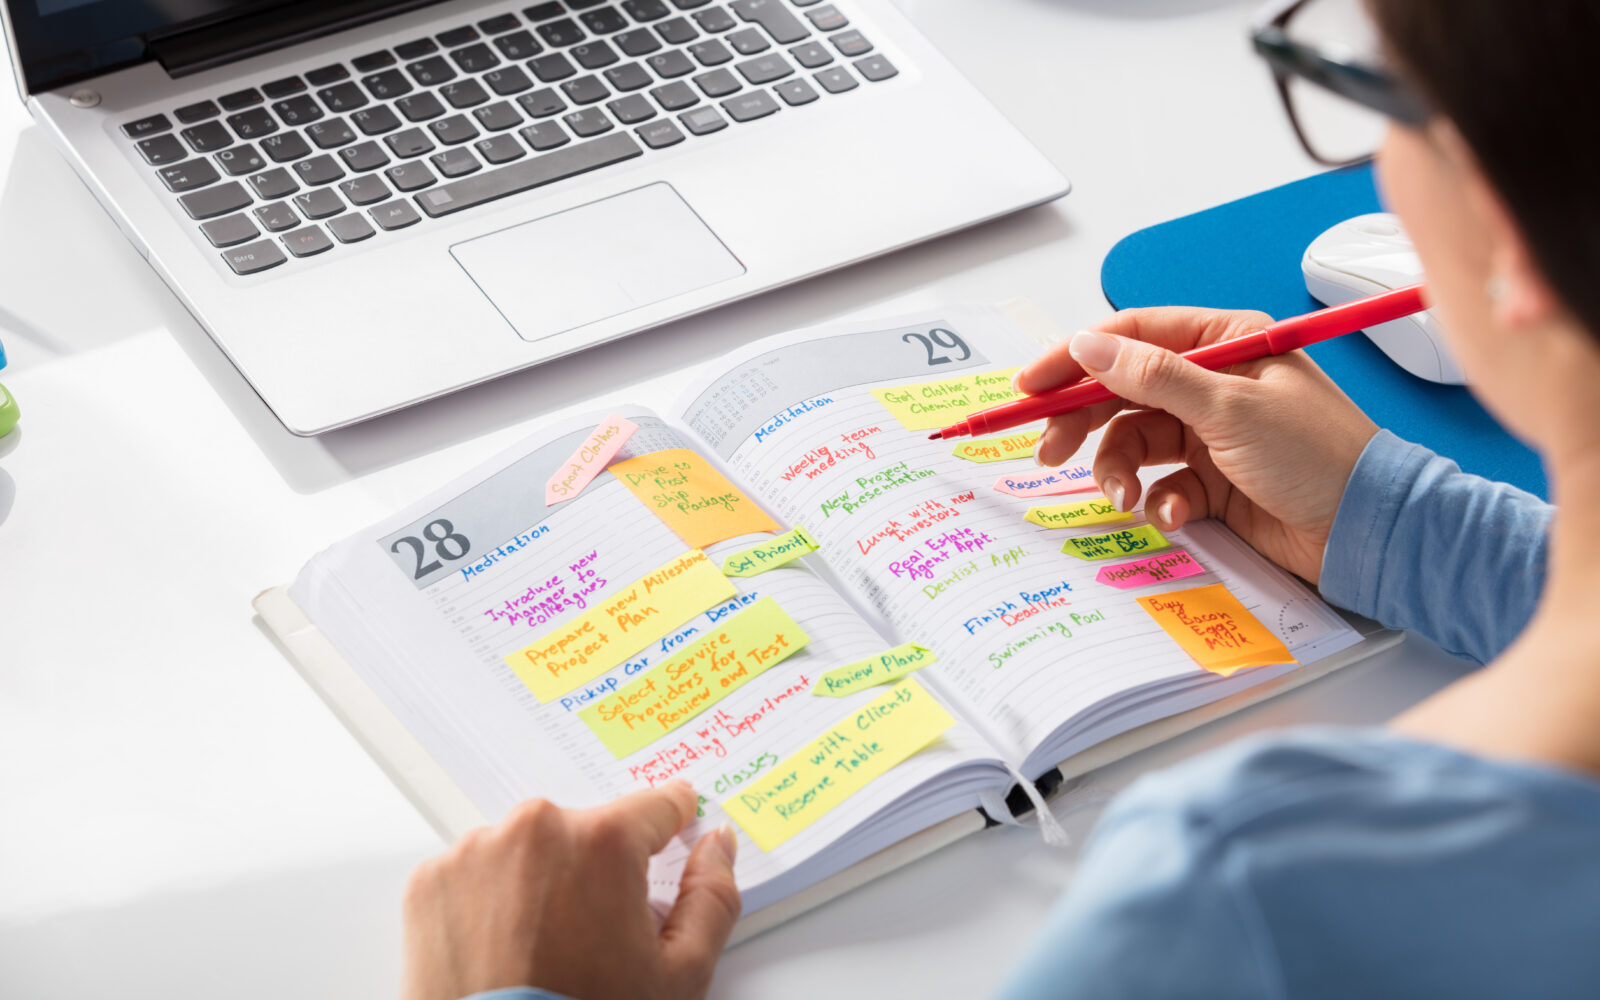 28
Meditation
Sport Clothes
Drive to
Post
Ship
Packages
Introduce new
Manager to
colleagues
Set Prioriti
Prepare new Milestone
Project Plan
Pickup Car from Dealer
Select Service
Providers for
Review and Test
Review Plans
Meeting with
Marketing Department
classes
Dinner with Clients
Reserve Table
29
Meditation
Get Clothes from
Chemical clean
Weekly team
meeting
Copy Slide
New Project
Presentation
Reserve Table
Lunch with new
Investors
Prepare Doc
Real Estate
Agent Appt.
Follow up
with Dev
Dentist Appt.
Update Charts
!!!
Finish Report
Deadlyne
Buy
Bacon
Eggs
Milk
Swimming Pool
29.7.
Esc
Q
W
E
R
T
Z
U
I
O
P
A
S
D
F
G
H
J
K
L
Y
X
C
V
B
N
M
Strg
Fn
Alt
Alt Gr
Strg